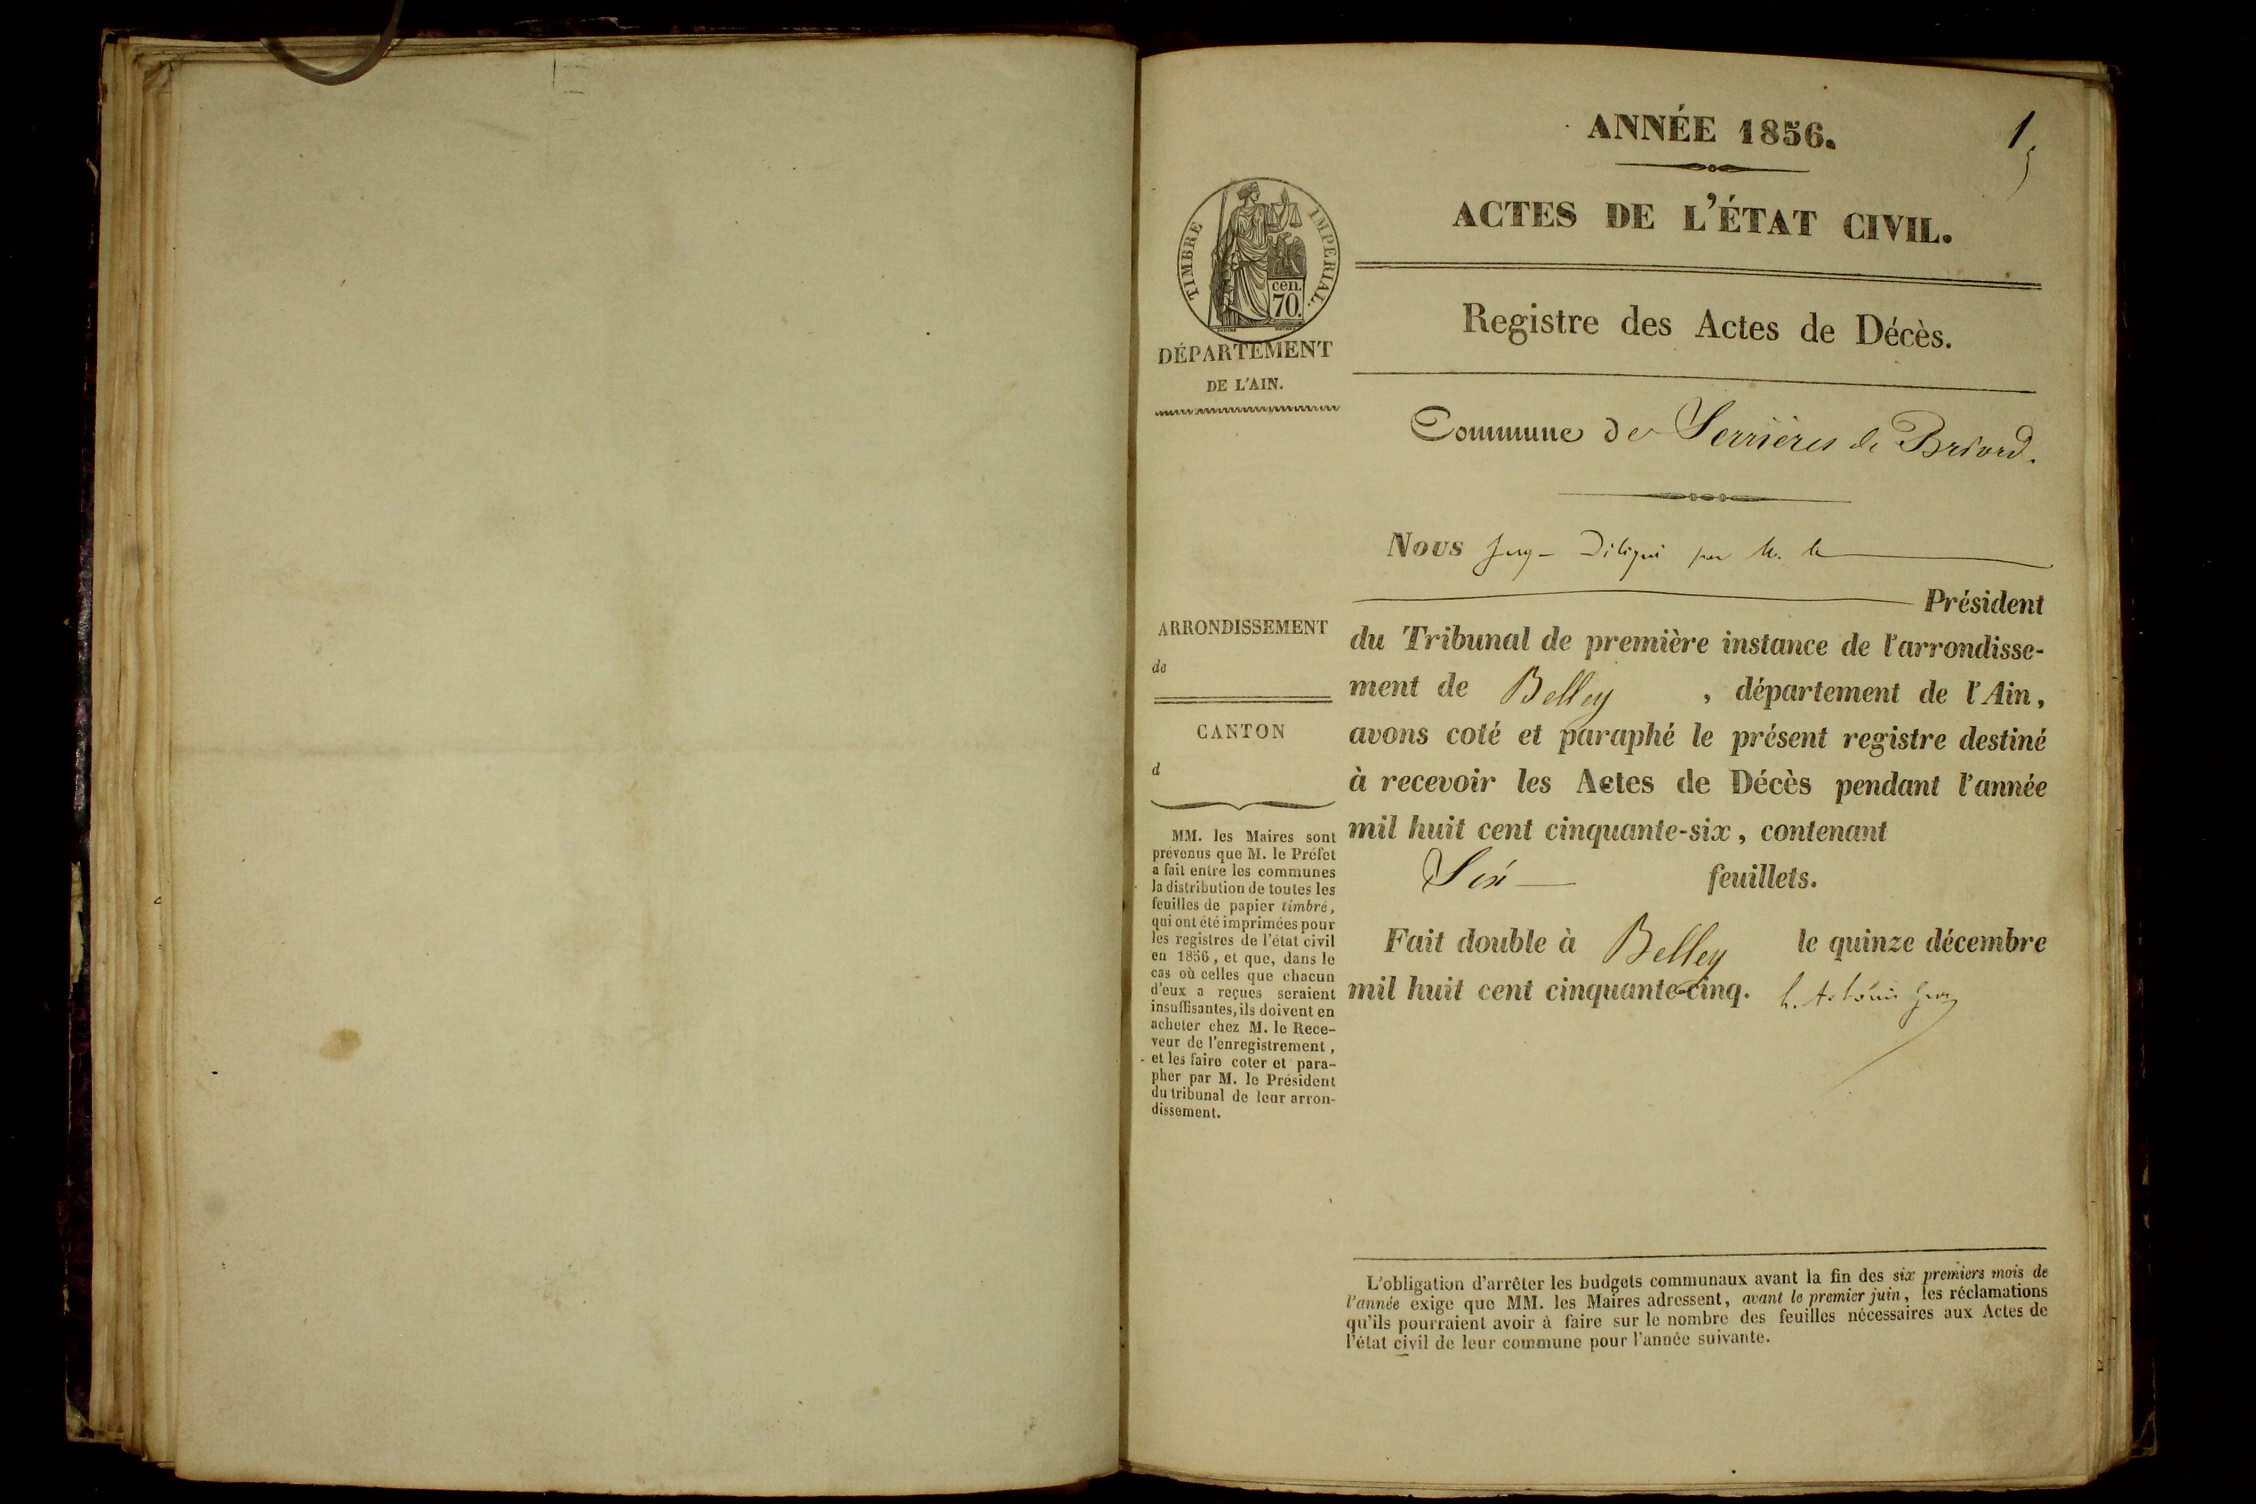 ANNÉE 1856.
1
ACTES DE L'ÉTAT CIVIL.
TIMBRE IMPERIAL.
cen.
70.
DÉPARTEMENT
DE L'AIN.
Registre des Actes de Décès.
Commune de Serrières de Briord.
Nous Juge Délégué par M. le
Président
du Tribunal de première instance de l'arrondisse-
ment de Belley , département de l'Ain,
avons coté et paraphé le présent registre destiné
à recevoir les Actes de Décès pendant l'année
mil huit cent cinquante-six, contenant
Six feuillets.
Fait double à Belley le quinze décembre
mil huit cent cinquante-cinq.
ARRONDISSEMENT
de
CANTON
d
MM. les Maires sont
prévenus que M. le Préfet
a fait entre les communes
la distribution de toutes les
feuilles de papier timbré,
qui ont été imprimées pour
les registres de l'état civil
en 1856, et que, dans le
cas où celles que chacun
d'eux a reçues seraient
insuffisantes, ils doivent en
acheter chez M. le Rece-
veur de l'enregistrement,
et les faire coter et para-
pher par M. le Président
du tribunal de leur arron-
dissement.
L'obligation d'arrêter les budgets communaux avant la fin des six premiers mois de
l'année exige que MM. les Maires adressent, avant le premier juin, les réclamations
qu'ils pourraient avoir à faire sur le nombre des feuilles nécessaires aux Actes de
l'état civil de leur commune pour l'année suivante.